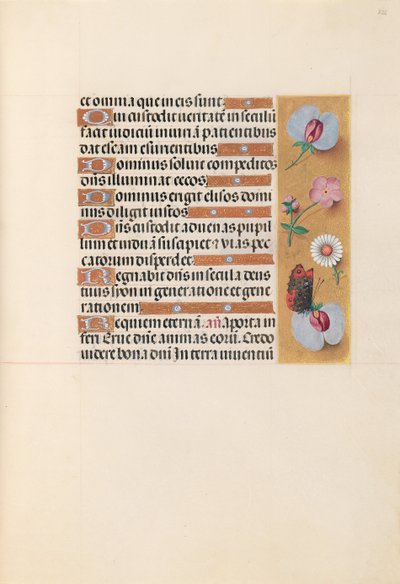 et omnia que in eis sunt.
Qui custodit veritatē in seculū
facit iudiciū iniuriā patientibus
dat escam esurientibus
Dominus soluit compeditos
dn̄s illuminat cecos.
Dominus erigit elisos domi
nus diligit iustos
Dn̄s custodit aduenas pupil
lum et viduā suscipiet & vias pec
catorum disperdet.
Regnabit dn̄s in secula deus
tuus syon in generatione et gene
rationem.
Requiem eternā. an̄. a porta in
feri Erue dn̄e animas eorū. Credo
videre bona dn̄i In terra viuentiū